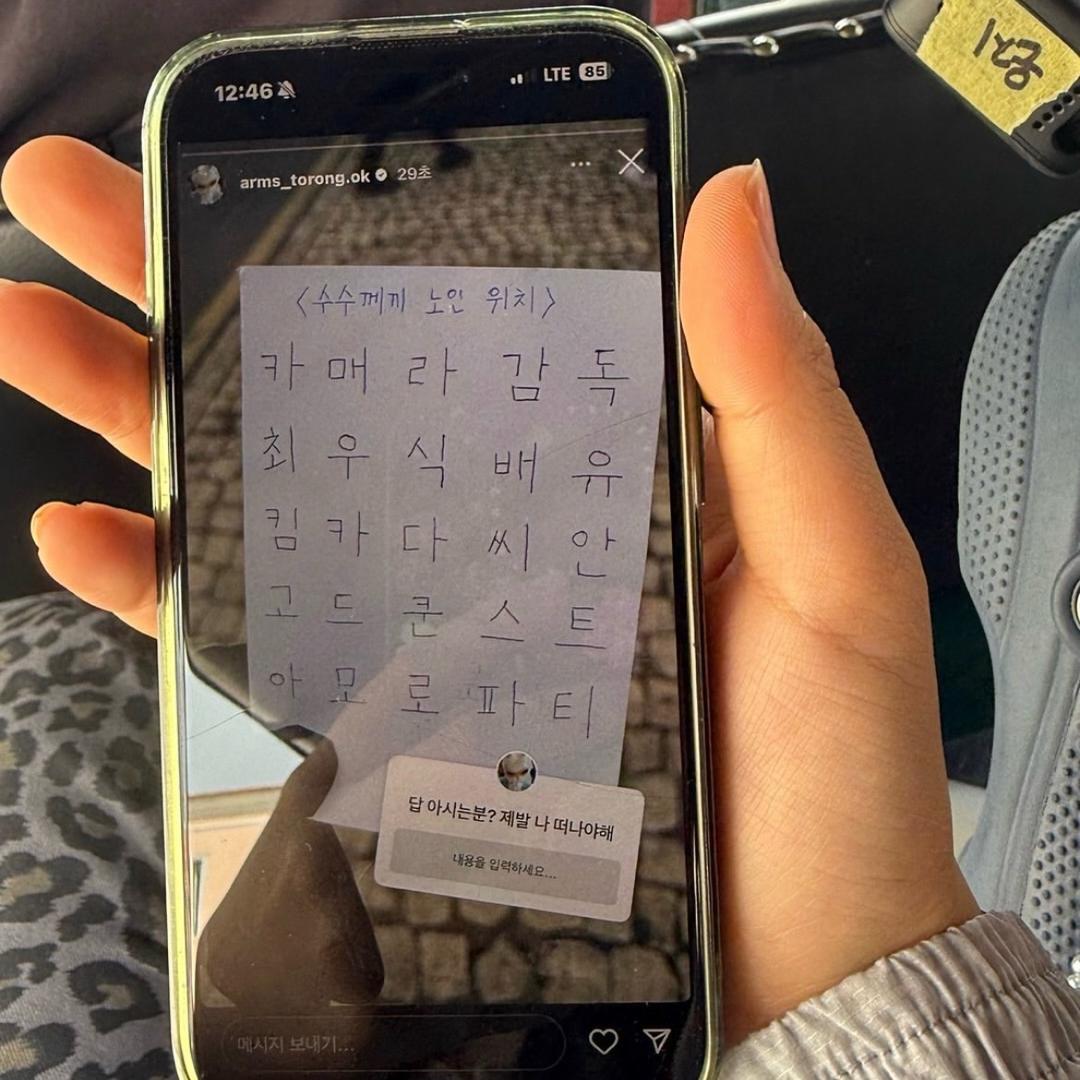 12:46 LTE 85
arms_torong.ok 29초
<수수께끼 노인 위치>
카 매 라 감 독
최 우 식 배 유
킴 카 다 씨 안
고 드 쿤 스 트
아 모 로 파 티
답 아시는분? 제발 나 떠나야해
내용을 입력하세요...
메시지 보내기...